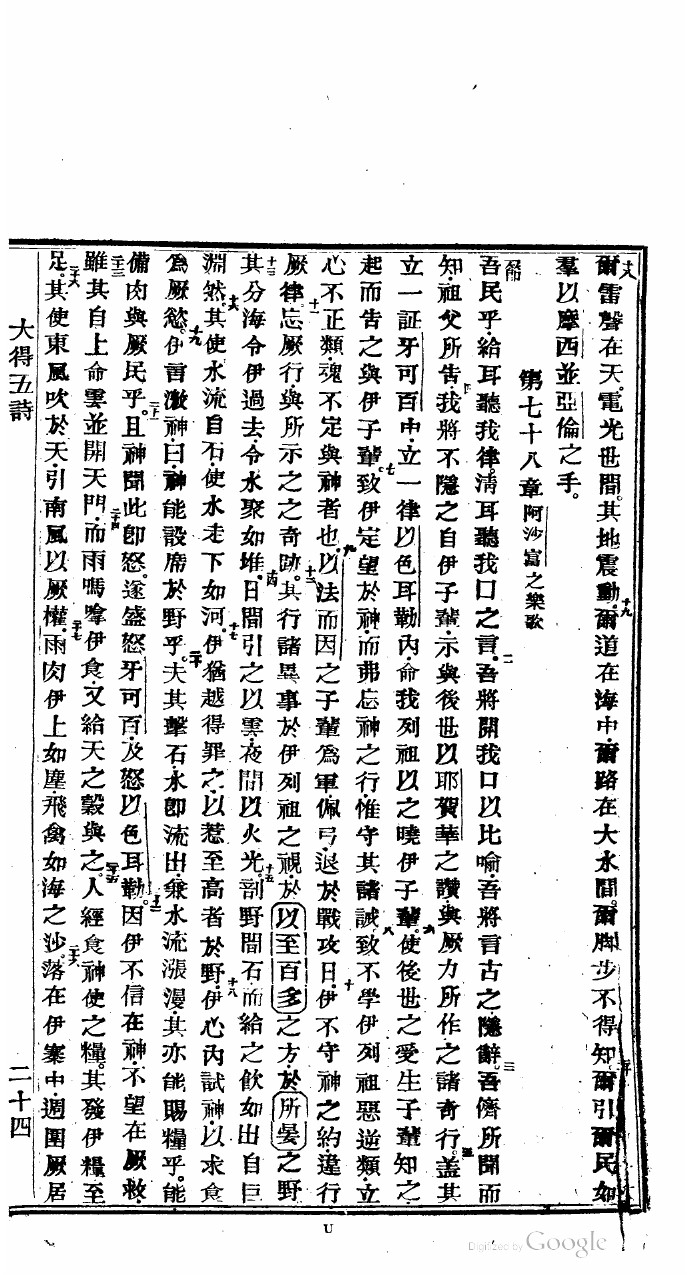 爾雷聲在天。電光世間。其地震動。爾道在海中。爾路在大水間。爾脚步不得知。爾引爾民如
羣以摩西並亞倫之手。
第七十八章 阿沙富之樂歌
吾民乎。給耳聽我律。淸耳聽我口之言。吾將開我口以比喻。吾將言古之隱辭。吾儕所聞而
知。祖父所告我將不隱之自伊子輩。示與後世以耶賀華之讚與厥力所作之諸奇行。蓋其
立一証牙可百中。立一律以色耳勒內。命我列祖以之曉伊子輩。使後世之愛生子輩知之
起而告之與伊子輩。致伊定望於神。而弗忘神之行。惟守其諸誡。致不學伊列祖惡逆類。立
心不正類。魂不定與神者也。以法而因之子輩爲軍佩弓。退於戰攻日。伊不守神之約。違行
厥律。忘厥行。與所示之之奇跡。其行諸異事於伊列祖之視。於以至百多之方。於所晏之野
其分海令伊過去。令水聚如堆。日間引之以雲。夜間以火光。剖野間石而給之飲如出自巨
淵然。其使水流自石。使水走下如河。伊猶越得罪之。以惹至高者於野。伊心內試神。以求食
爲厥慾。伊言激神。曰。神能設席於野乎。夫其擊石。水卽流出。衆水流漲漫。其亦能賜糧乎。能
備肉與厥民乎。且神聞此卽怒。遂盛怒牙可百。及怒以色耳勒。因伊不信在神。不望在厥救。
雖其自上命雲並開天門。而雨嗎嗱伊食。又給天之穀與之。人經食神使之糧。其發伊糧至
足。其使東風吹於天。引南風以厥權。雨肉伊上如塵。飛禽如海之沙。落在伊寨中。週圍厥居
大得五詩
二十四
U
Digitized by Google